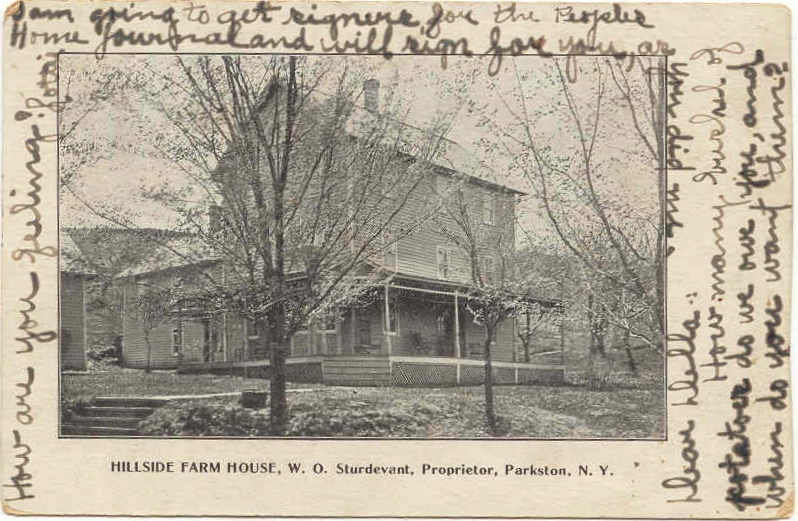 Dear Della:
How many bushel of
potatoes do we owe you, and
when do you want them?
How are you feeling?
I am going to get signers for the Peoples
Home Journal and will sign for you, as
you did me.
HILLSIDE FARM HOUSE, W. O. Sturdevant, Proprietor, Parkston, N. Y.